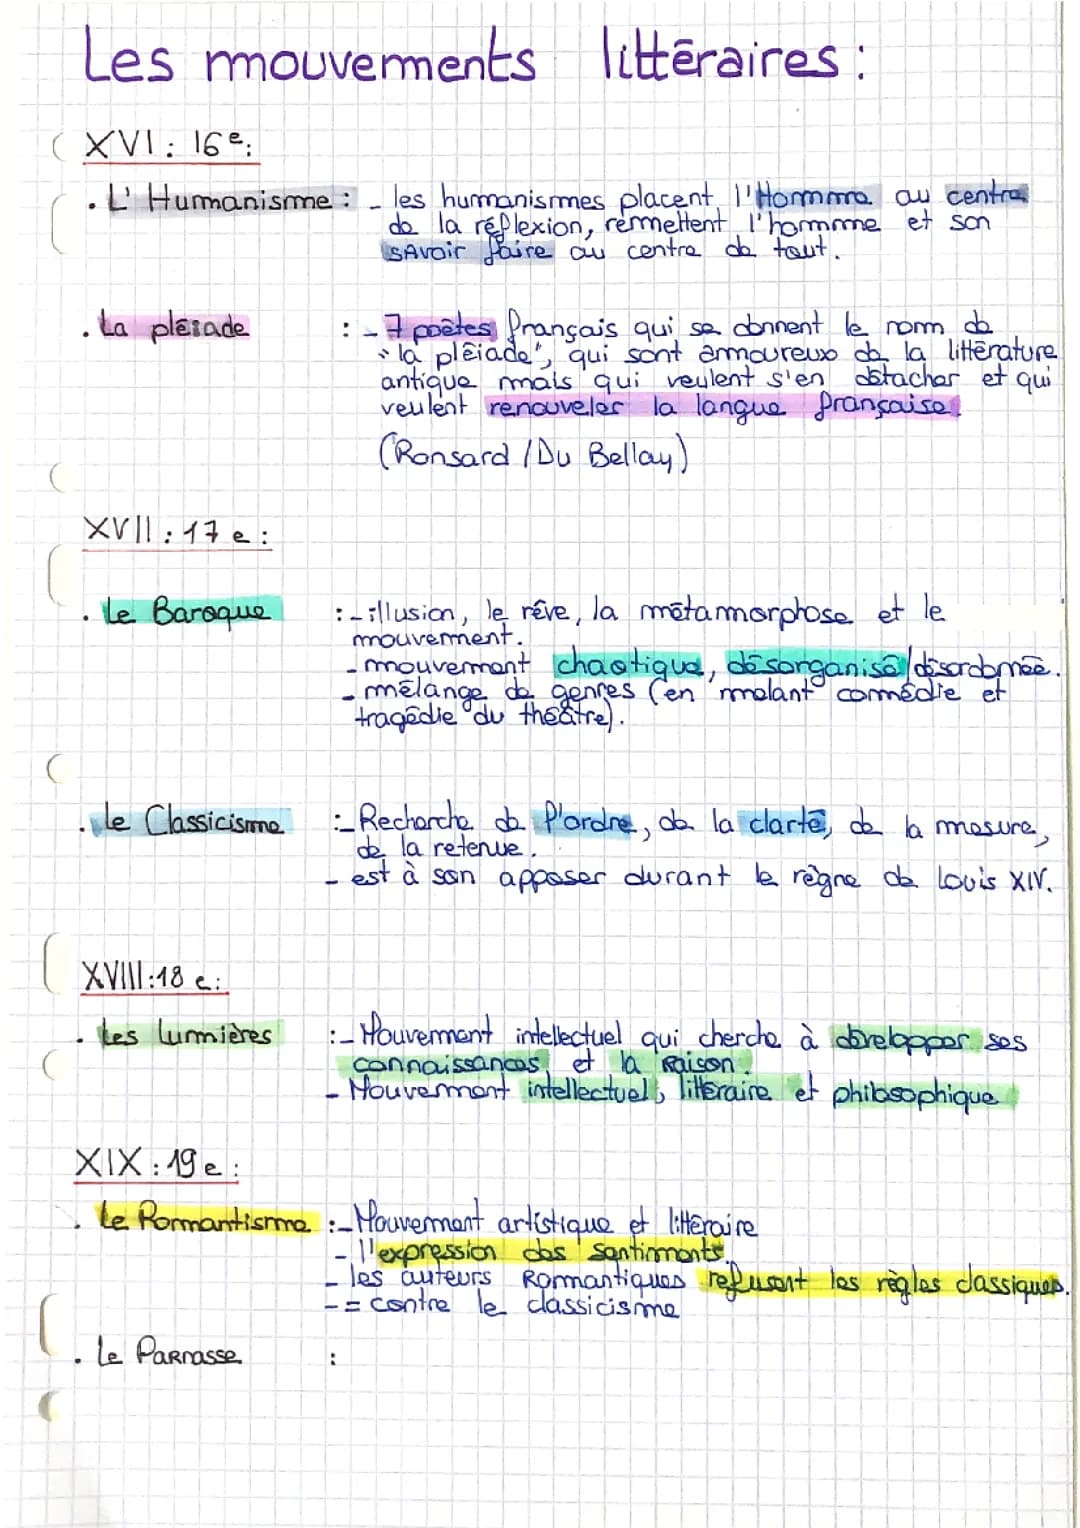 Les mouvements littéraires :
XVI : 16e :
. L'Humanisme : - les humanismes placent l'Homme au centre
de la réflexion, remettent l'homme et son
savoir faire au centre de tout.
. La pléiade : - 7 poètes français qui se donnent le nom de
"la plêiade", qui sont amoureux de la littérature
antique mais qui veulent s'en détacher et qui
veulent renouveler la langue française.
(Ronsard / Du Bellay)
XVII : 17 e :
. Le Baroque : - illusion, le rêve, la métamorphose et le
mouvement.
- mouvement chaotique, désorganisé/désordonnée.
- mélange de genres (en melant comédie et
tragédie du théâtre).
. Le Classicisme : - Recherche de l'ordre, de la clarté, de la mesure,
de la retenue.
- est à son apposer durant le règne de Louis XIV.
XVIII : 18 e :
. Les lumières : - Mouvement intellectuel qui cherche à developper ses
connaissances et la raison.
- Mouvement intellectuel, littéraire et philosophique
XIX : 19 e :
. Le Romantisme : - Mouvement artistique et littéraire
- l'expression des sentiments.
- les auteurs Romantiques refusent les règles classiques.
- = contre le classicisme
. Le Parnasse :